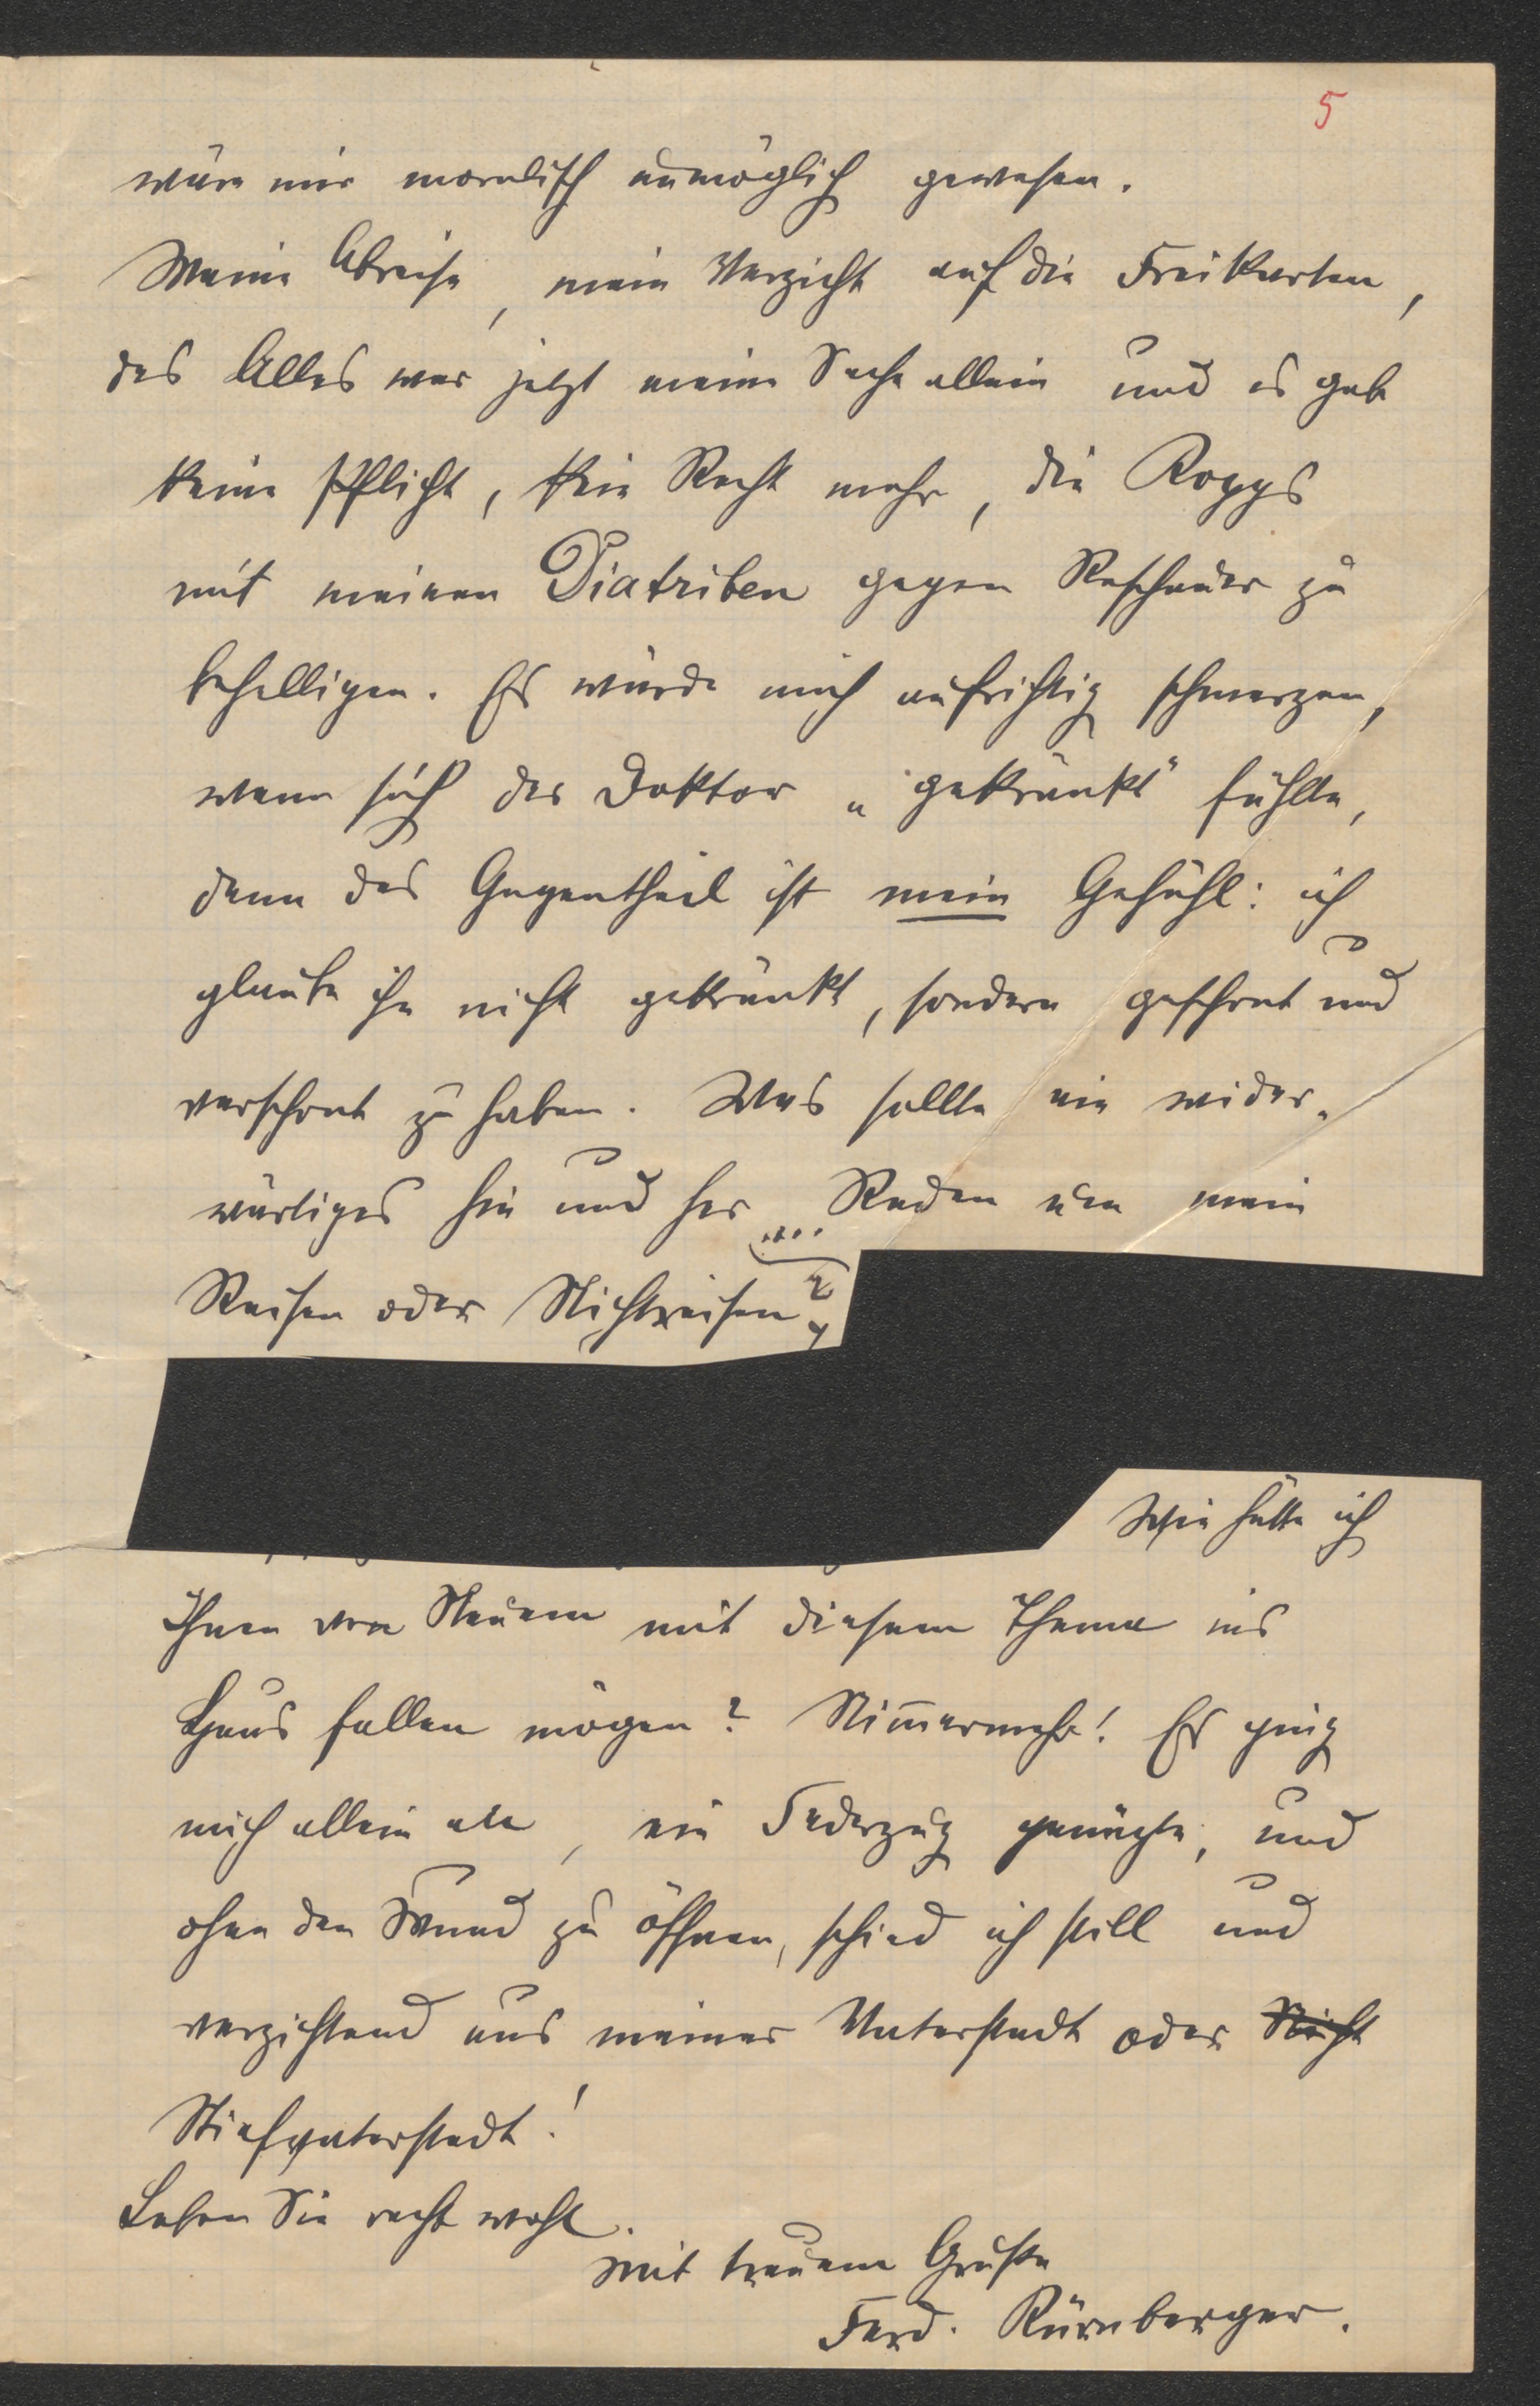 5
wäre mir moralisch unmöglich gewesen.
Meine Abreise, mein Verzicht auf die Freikarten,
das Alles war jetzt meine Sache allein und es gab
keine Pflicht, kein Recht mehr, die Ropps
mit meinen Diatriben gegen Reschauer zu
behelligen. Es würde mich aufrichtig schmerzen,
wenn sich der Doktor „gekränkt" fühlte,
denn das Gegentheil ist mein Gefühl: ich
glaube ihn nicht gekränkt, sondern geschont und
verschont zu haben. Was sollte ein wider-
wärtiges hin und her Reden um mein
Reisen oder Nichtreisen?
Wie hätte ich
Ihnen von Neuem mit diesem Thema ins
Haus fallen mögen? Nimmermehr! Es ging
mich allein an, ein Federzug genügte, und
ohne den Mund zu öffnen, schied ich still und
verzichtend aus meiner Vaterstadt oder Nicht
Stiefvaterstadt!
Leben Sie recht wohl.
Mit treuem Gruße
Ferd. Kürnberger.